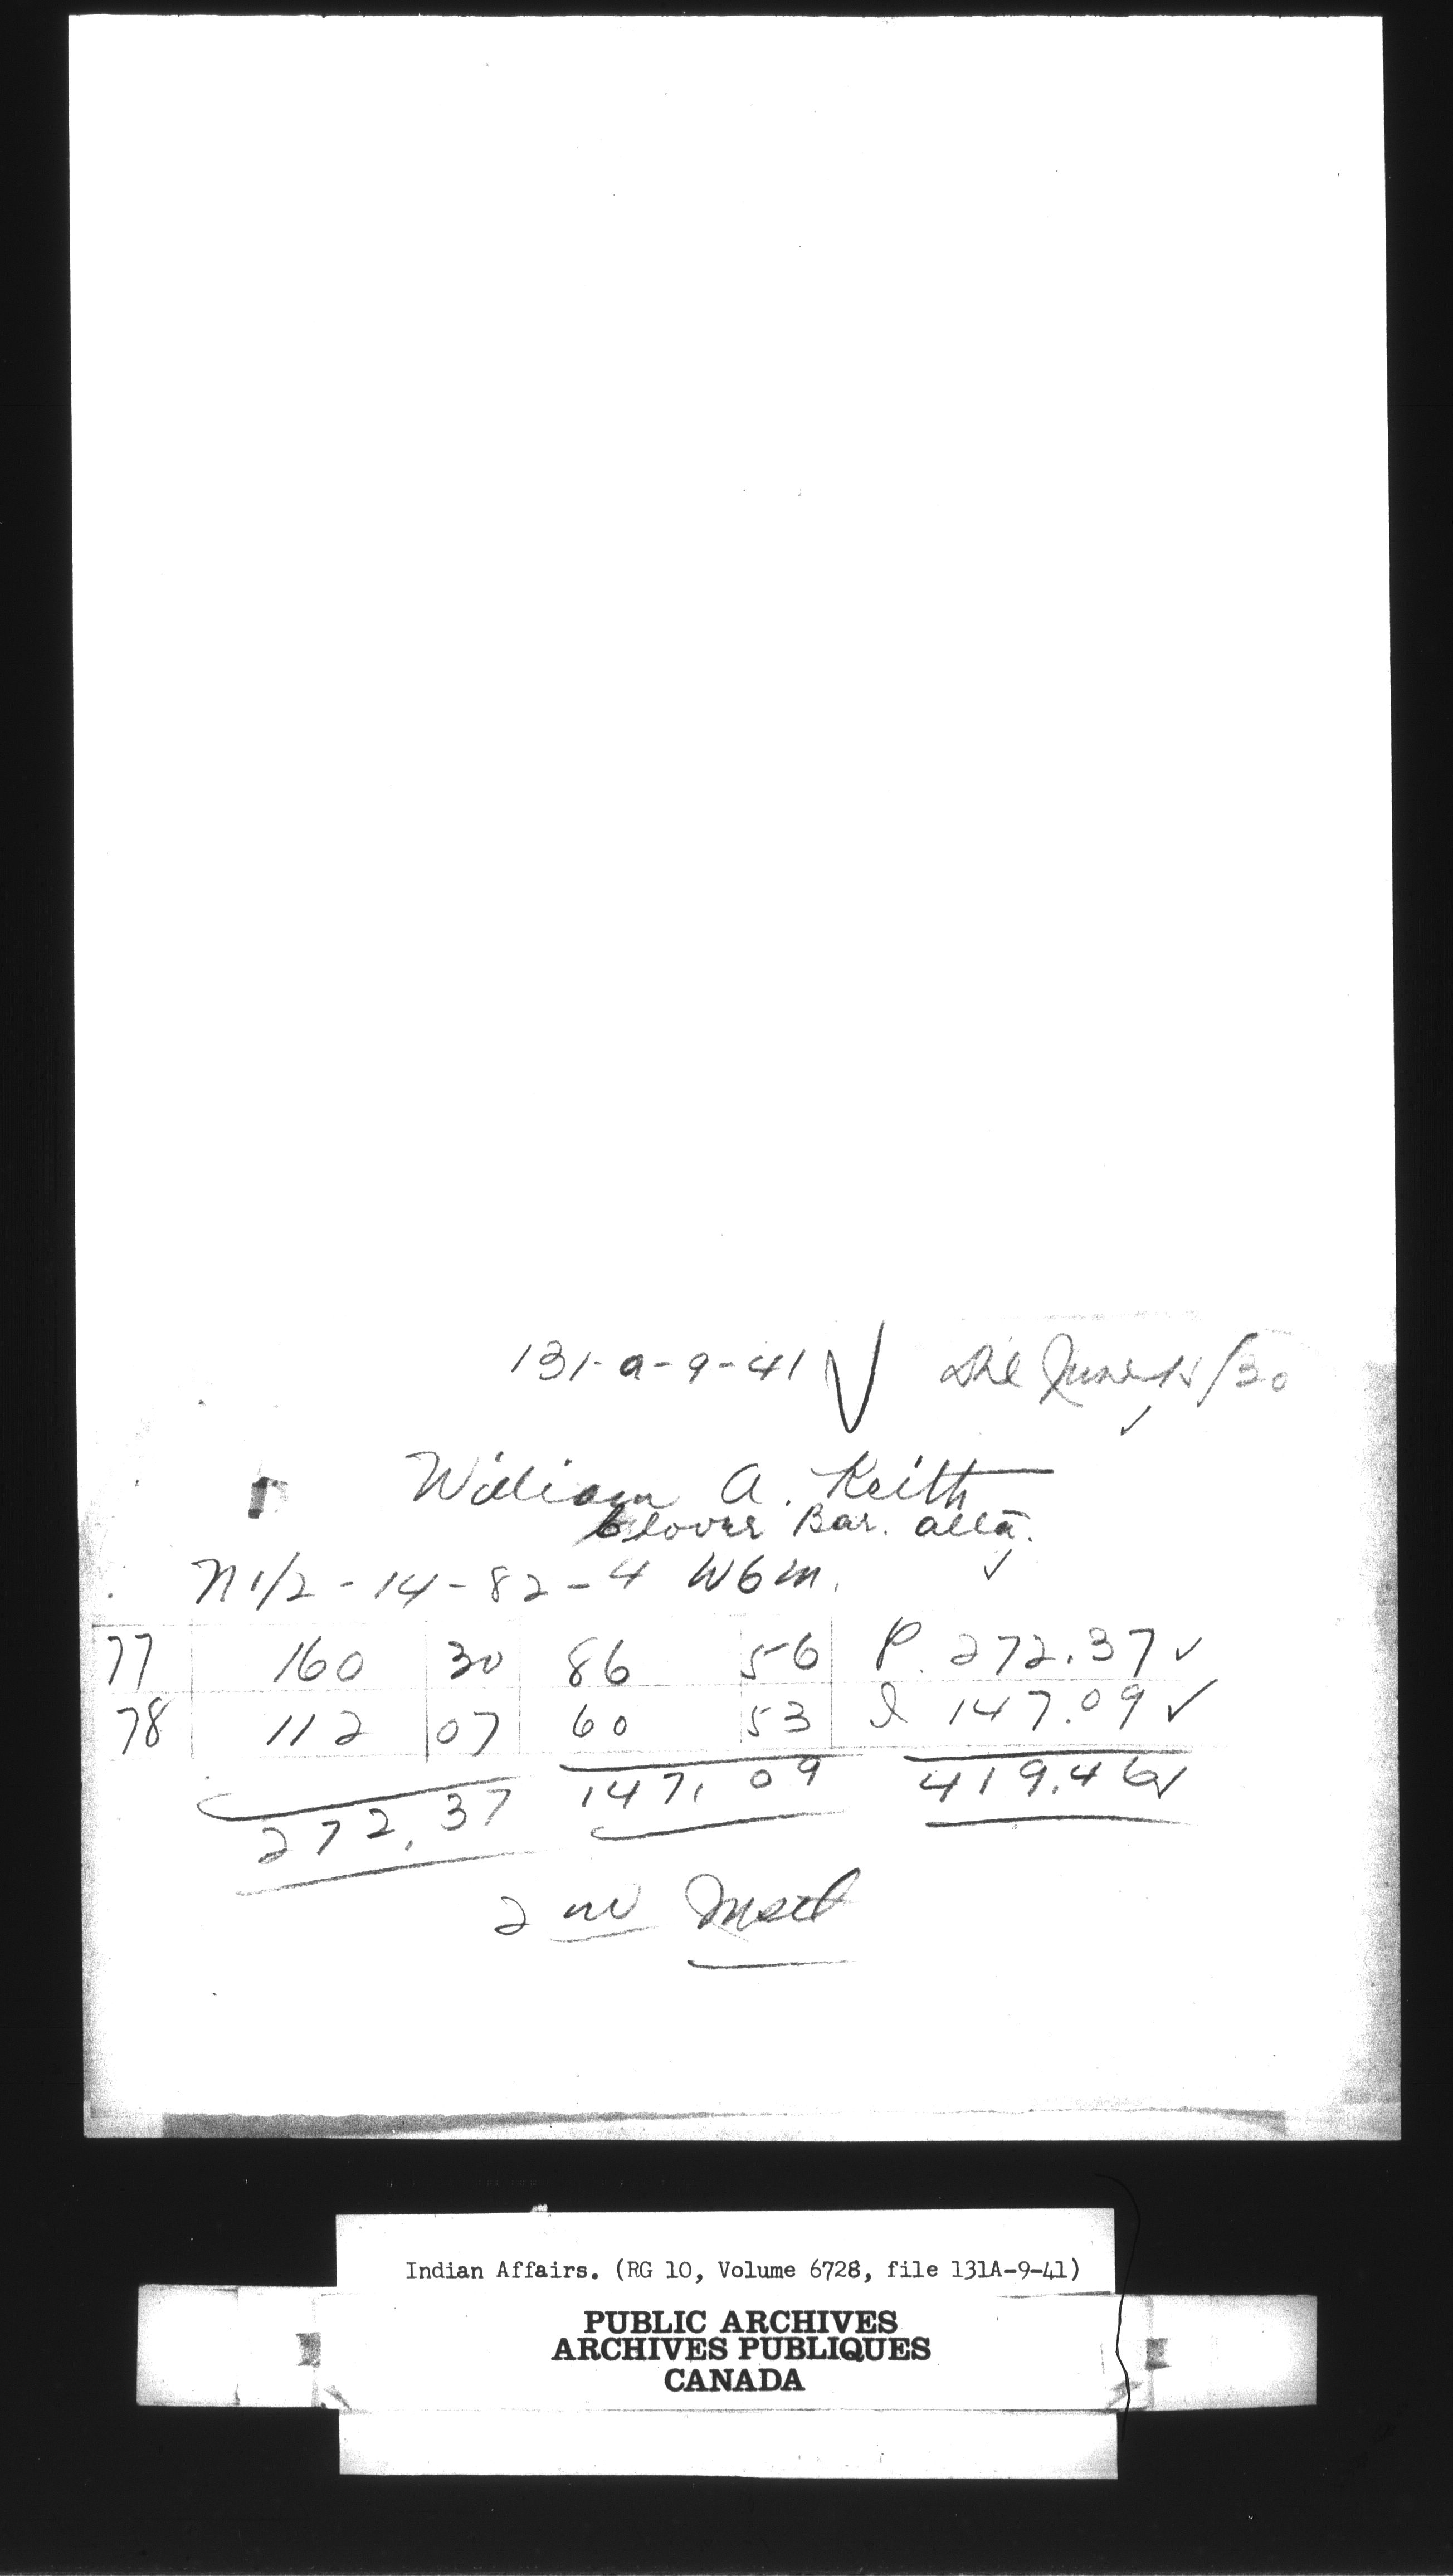 131-a-9-41 √ June 15/30 ✓
William A. Keith
Clover Bar. Alta. ✓
N 1/2 - 14 - 82 - 4 W6M.
77 160 30 86 56 P. 272.37 ✓
78 112 07 60 53 I 147.09 ✓
272.37 147.09 419.46 ✓
2nd Inst
Indian Affairs. (RG 10, Volume 6728, file 131A-9-41)
PUBLIC ARCHIVES
ARCHIVES PUBLIQUES
CANADA